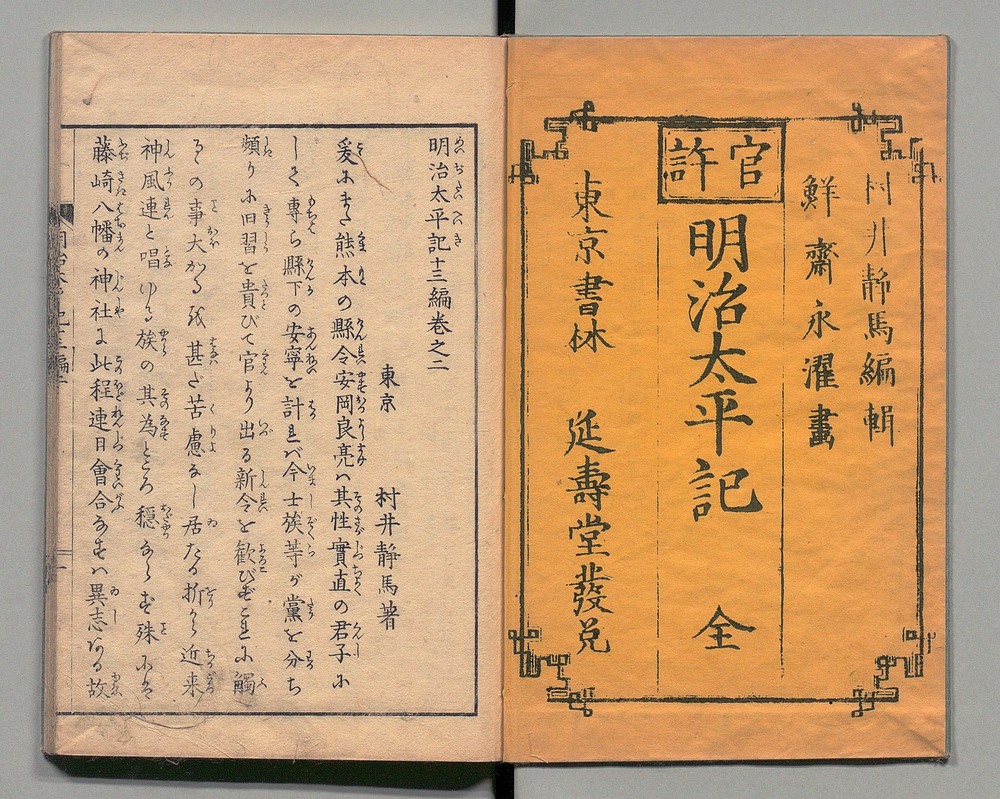 官許
村井靜馬編輯
鮮齋永濯畫
明治太平記 全
東京書林 延壽堂發兌
明治太平記十三編卷之二
東京 村井靜馬著
爰にまた熊本の縣令安岡良亮ハ其性實直の君子に
して專ら縣下の安寧を計れバ今士族等が黨を分ち
頻りに旧習を貴びて官より出る新令を歓びずこれに觸
るの事大かる
甚だ苦慮なし居たる折から近来
神風連と唱ゆる族の其為ところ穏ならず殊にハ
藤崎八幡の神社に此程連日會合なすハ異志ある故